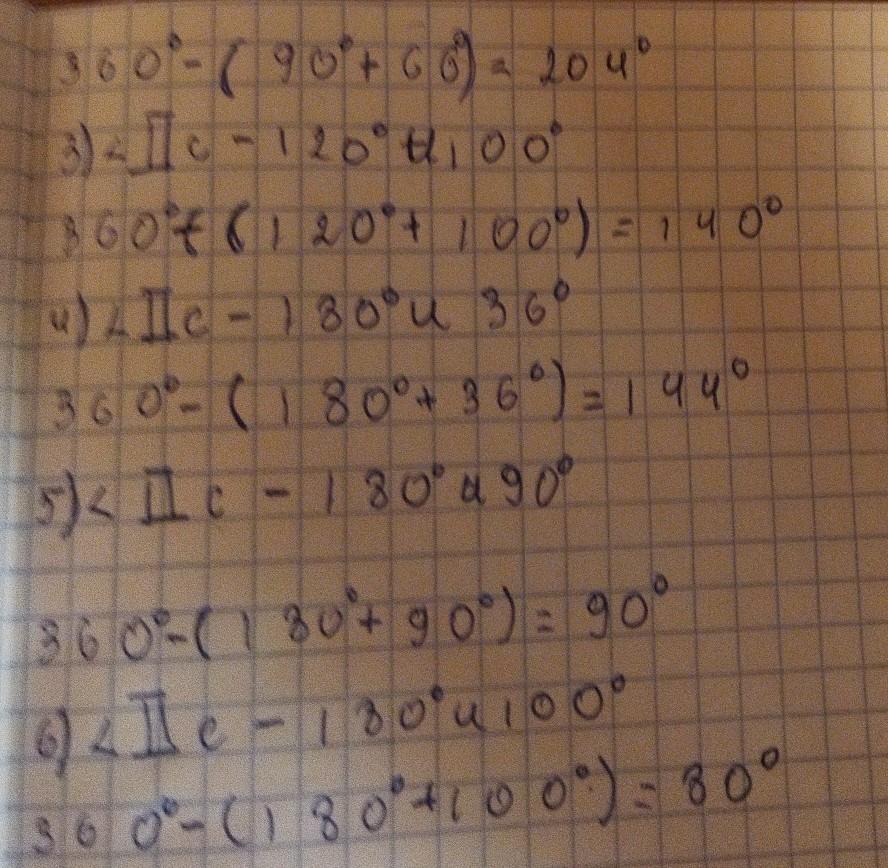 360°-(90°+66°)=204°
3)<IIс - 120° и 100°
360°-(120°+100°)=140°
4)<IIс - 180° и 36°
360°-(180°+36°)=144°
5)<IIс - 180° и 90°
360°-(180°+90°)=90°
6)<IIс - 180° и 100°
360°-(180°+100°)=80°